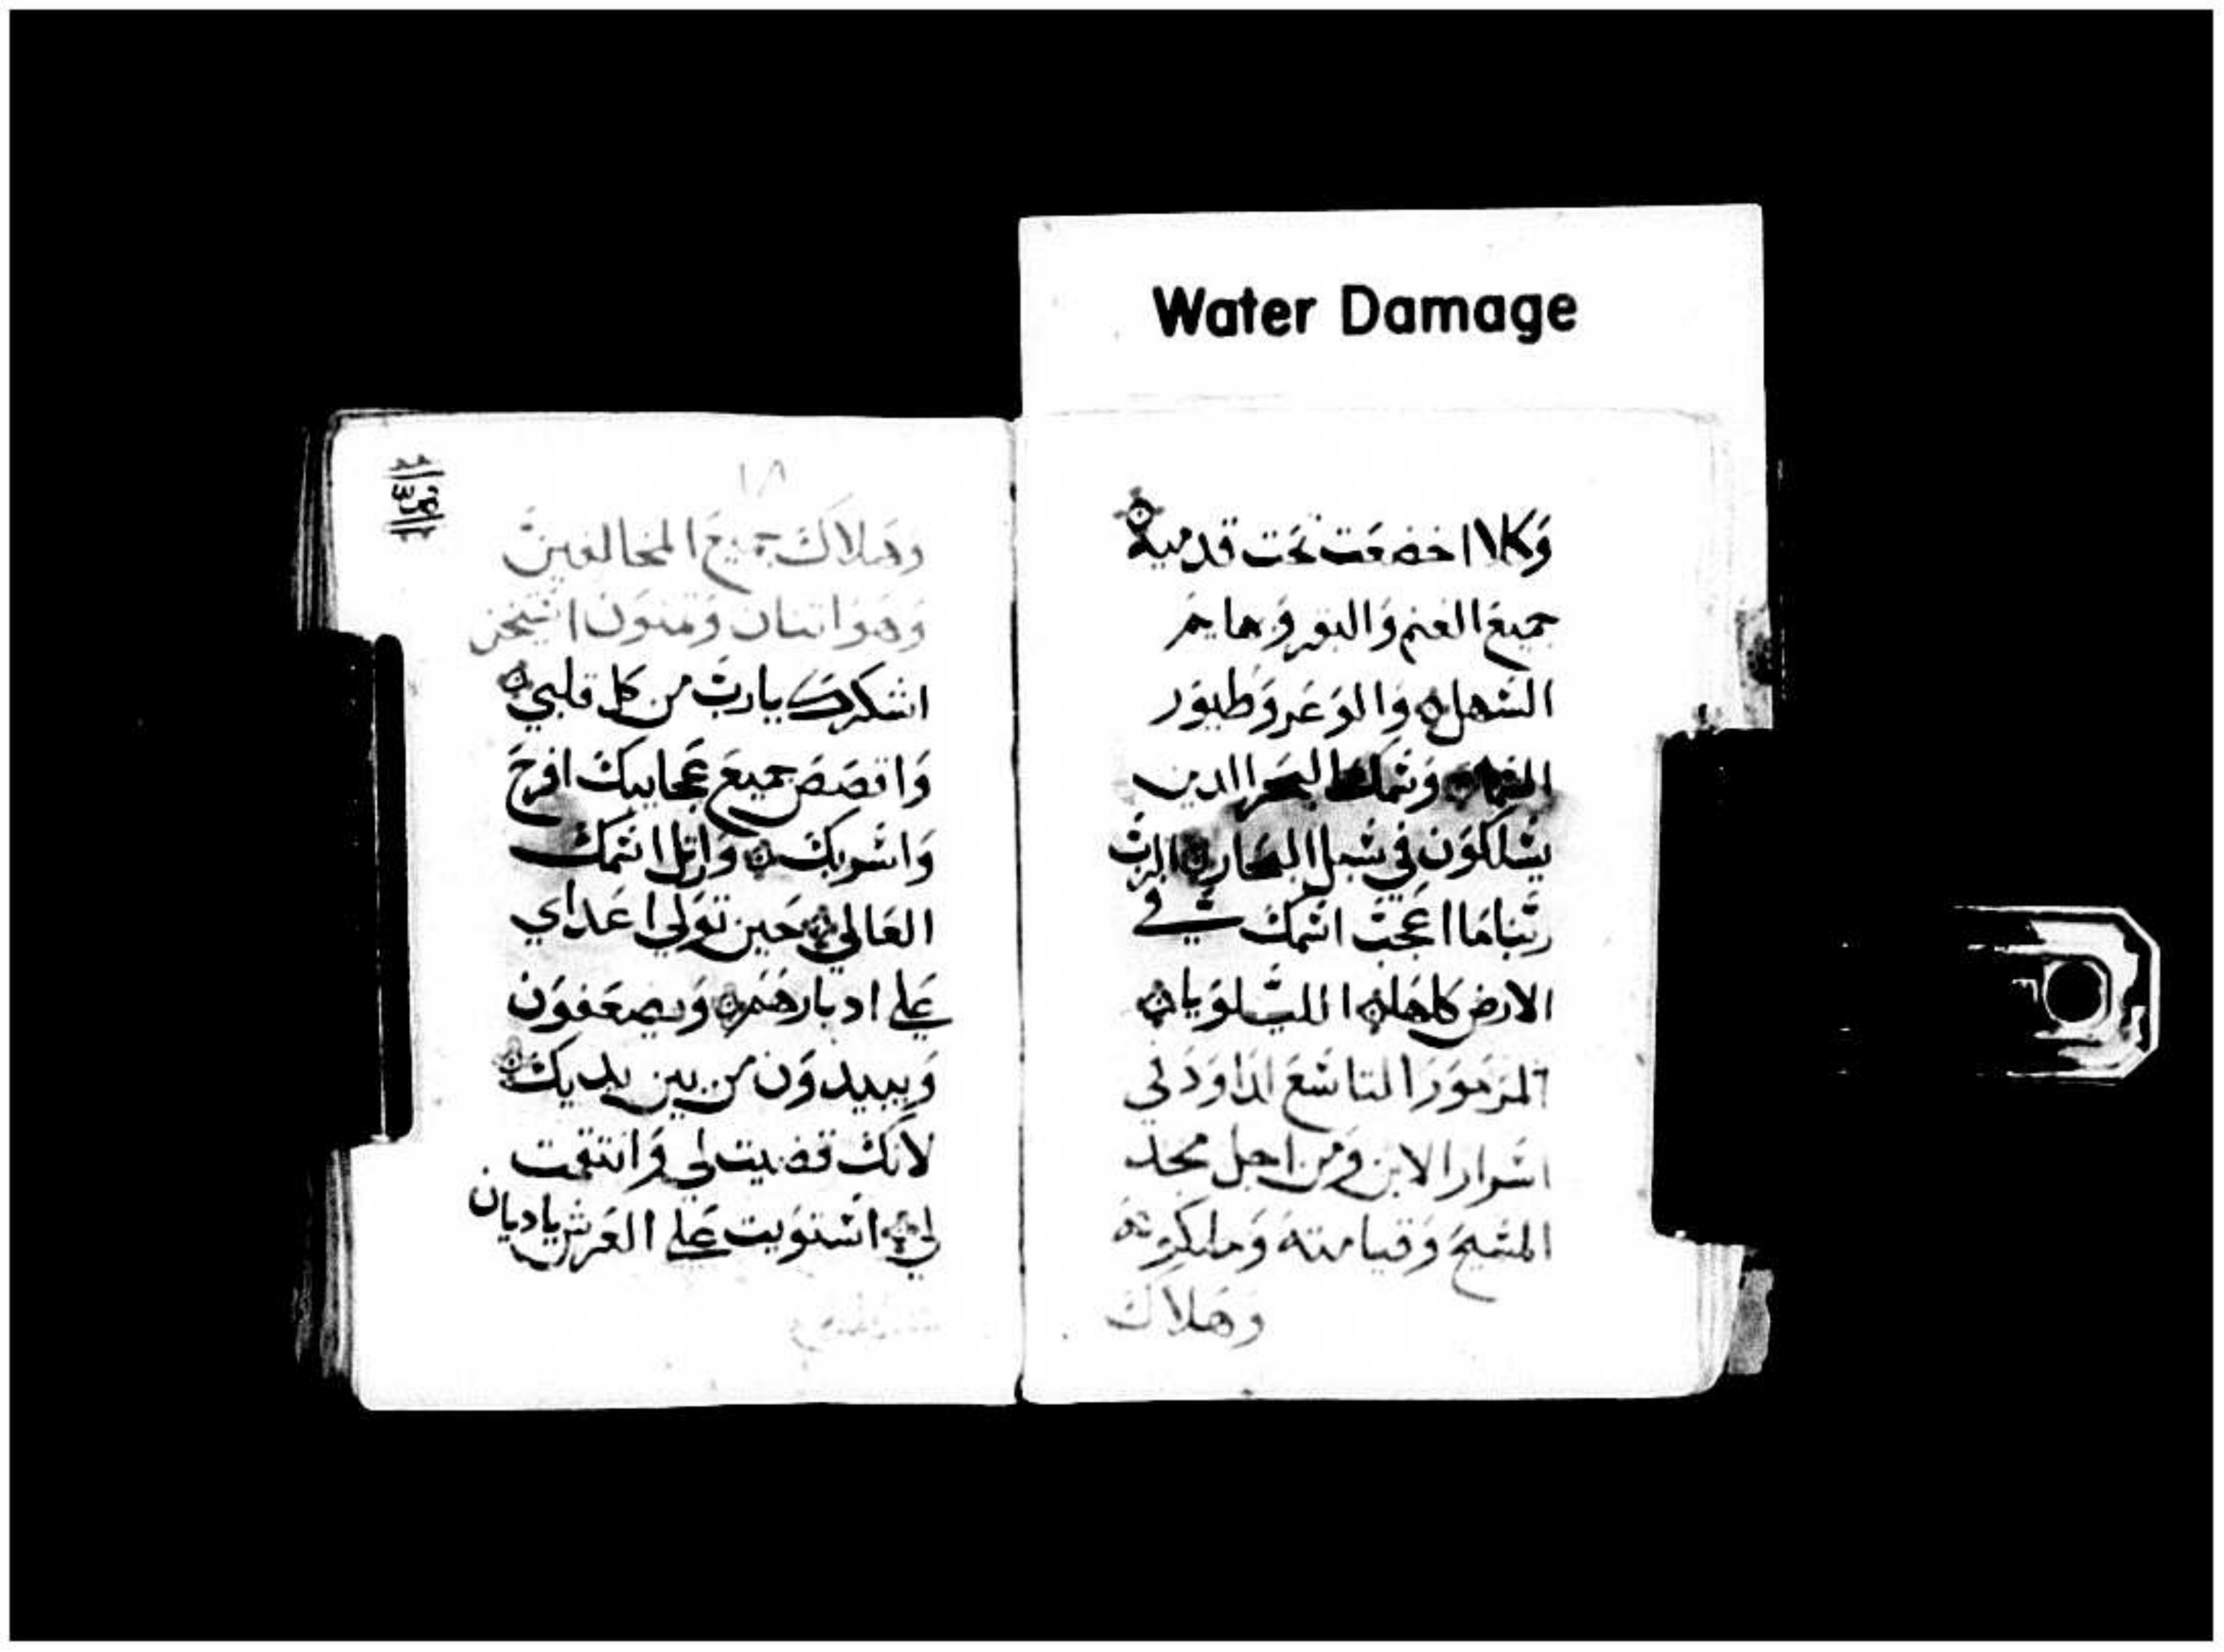 Water Damage
وَكلا اخضعَت تحَت قدميه
جميعَ الغنم وَالبقر وَبهايم
السَهل وَالوَعَر وَطيوَر
السما وَسَمك البحَر الدين
يسَلكوَن في سَبل البحار الربَ
ربَنا مَا اعَجبَ اسَمك في
الارض كلهَا الليلوَيا
المزموَر التاسَعَ لداوَد في
اسَرار الابن وَمن اجل مجد
المسَيحَ وَقيامته وَملكوته
وَهَلاكَ
١٨
وهَلاكَ جميعَ المخالفينَ
وَهوَ اتنان وَتمنوَن استيخن
اشكرك يا ربَ من كل قلبي
وَاقصَصَ جميعَ عَجايبكَ افرحَ
وَاسَر بكَ وَارتل اسَمكَ
العَالي حَين توَلي اعَداي
عَلي ادبارهَم وَيضعَفوَن
وَيبيدوَن من بين يديكَ
لانكَ قضيت لي وَانتقمت
لي اسَتوَيت عَلي العَرش يا ديان